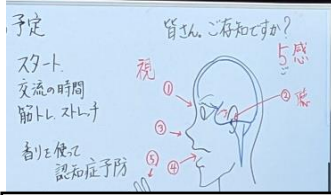 予定
スタート
交流の時間
筋トレ、ストレッチ
香りを使って
認知症予防
皆さん。ご存知ですか?
5感
ご
視
①
② 聴
③
④
⑤